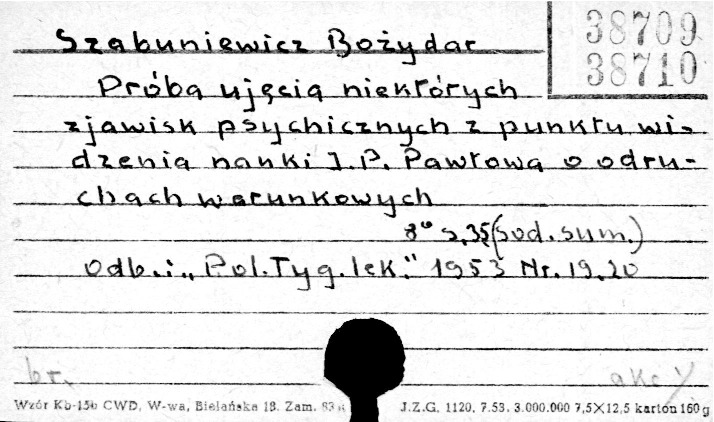 38709
38710
Szabuniewicz Bożydar
Próba ujęcia niektórych
zjawisk psychicznych z punktu wi-
dzenia nauki I. P. Pawłowa o odru-
chach warunkowych
8° s. 35 (sod. sum.)
odb. i „Pol. Tyg. lek." 1953 Nr. 19. 20
br.
akc
Wzór Kb-15b CWD, W-wa, Bielańska 18. Zam. 83
J.Z.G. 1120. 7.53. 3.000.000 7,5×12,5 karton 160 g